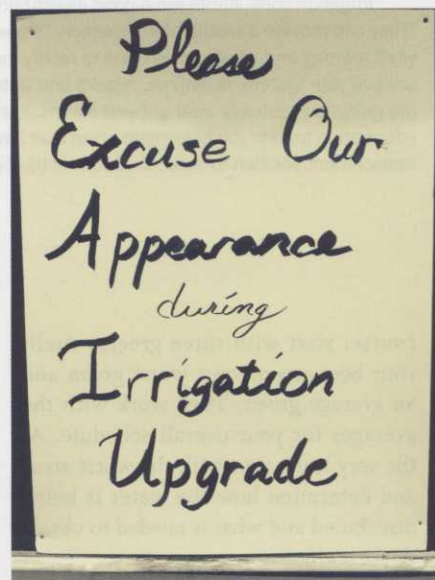 Please
Excuse Our
Appearance
during
Irrigation
Upgrade